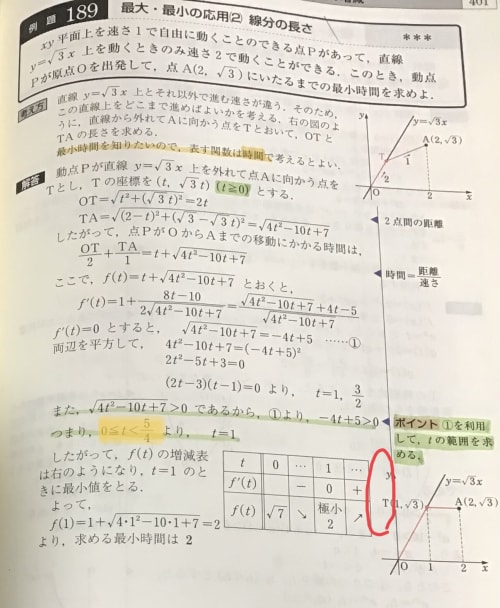 401
例題 189 最大・最小の応用(2) 線分の長さ ***
xy平面上を速さ1で自由に動くことのできる点Pがあって,直線
y=√3x 上を動くときのみ速さ2で動くことができる.このとき,動点
Pが原点Oを出発して,点A(2, √3)にいたるまでの最小時間を求めよ.
考え方 直線 y=√3x 上とそれ以外で進む速さが違う.そのため,
この直線上をどこまで進めばよいかを考える.右の図のよ
うに,直線から外れてAに向かう点をTとおいて,OTと
TAの長さを求める.
最小時間を知りたいので,表す関数は時間で考えるとよい.
y
y=√3x
A(2,√3)
T
1
2
O
x
解答 動点Pが直線 y=√3x 上を外れて点Aに向かう点を
Tとし,Tの座標を(t, √3t) (t≧0) とする.
OT=√(t²+(√3t)²)=2t
TA=√((2-t)²+(√3-√3t)²)=√(4t²-10t+7)
2点間の距離
したがって,点PがOからAまでの移動にかかる時間は,
OT/2+TA/1=t+√(4t²-10t+7)
時間=距離/速さ
ここで,f(t)=t+√(4t²-10t+7) とおくと,
f'(t)=1+(8t-10)/(2√(4t²-10t+7))=(√(4t²-10t+7)+4t-5)/√(4t²-10t+7)
f'(t)=0 とすると, √(4t²-10t+7)=-4t+5 ……①
両辺を平方して, 4t²-10t+7=(-4t+5)²
2t²-5t+3=0
(2t-3)(t-1)=0 より, t=1, 3/2
また,√(4t²-10t+7)>0 であるから,①より,-4t+5>0
つまり,0≦t<5/4 より, t=1
ポイント ①を利用
して,tの範囲を求
める.
したがって,f(t)の増減表
は右のようになり,t=1 のと
きに最小値をとる.
よって,
f(1)=1+√(4・1²-10・1+7)=2
より,求める最小時間は 2
t 0 … 1 …
f'(t) - 0 +
f(t) √7 ↘ 極小 2 ↗
y
y=√3x
T(1,√3)
A(2,√3)
O
1
2
x